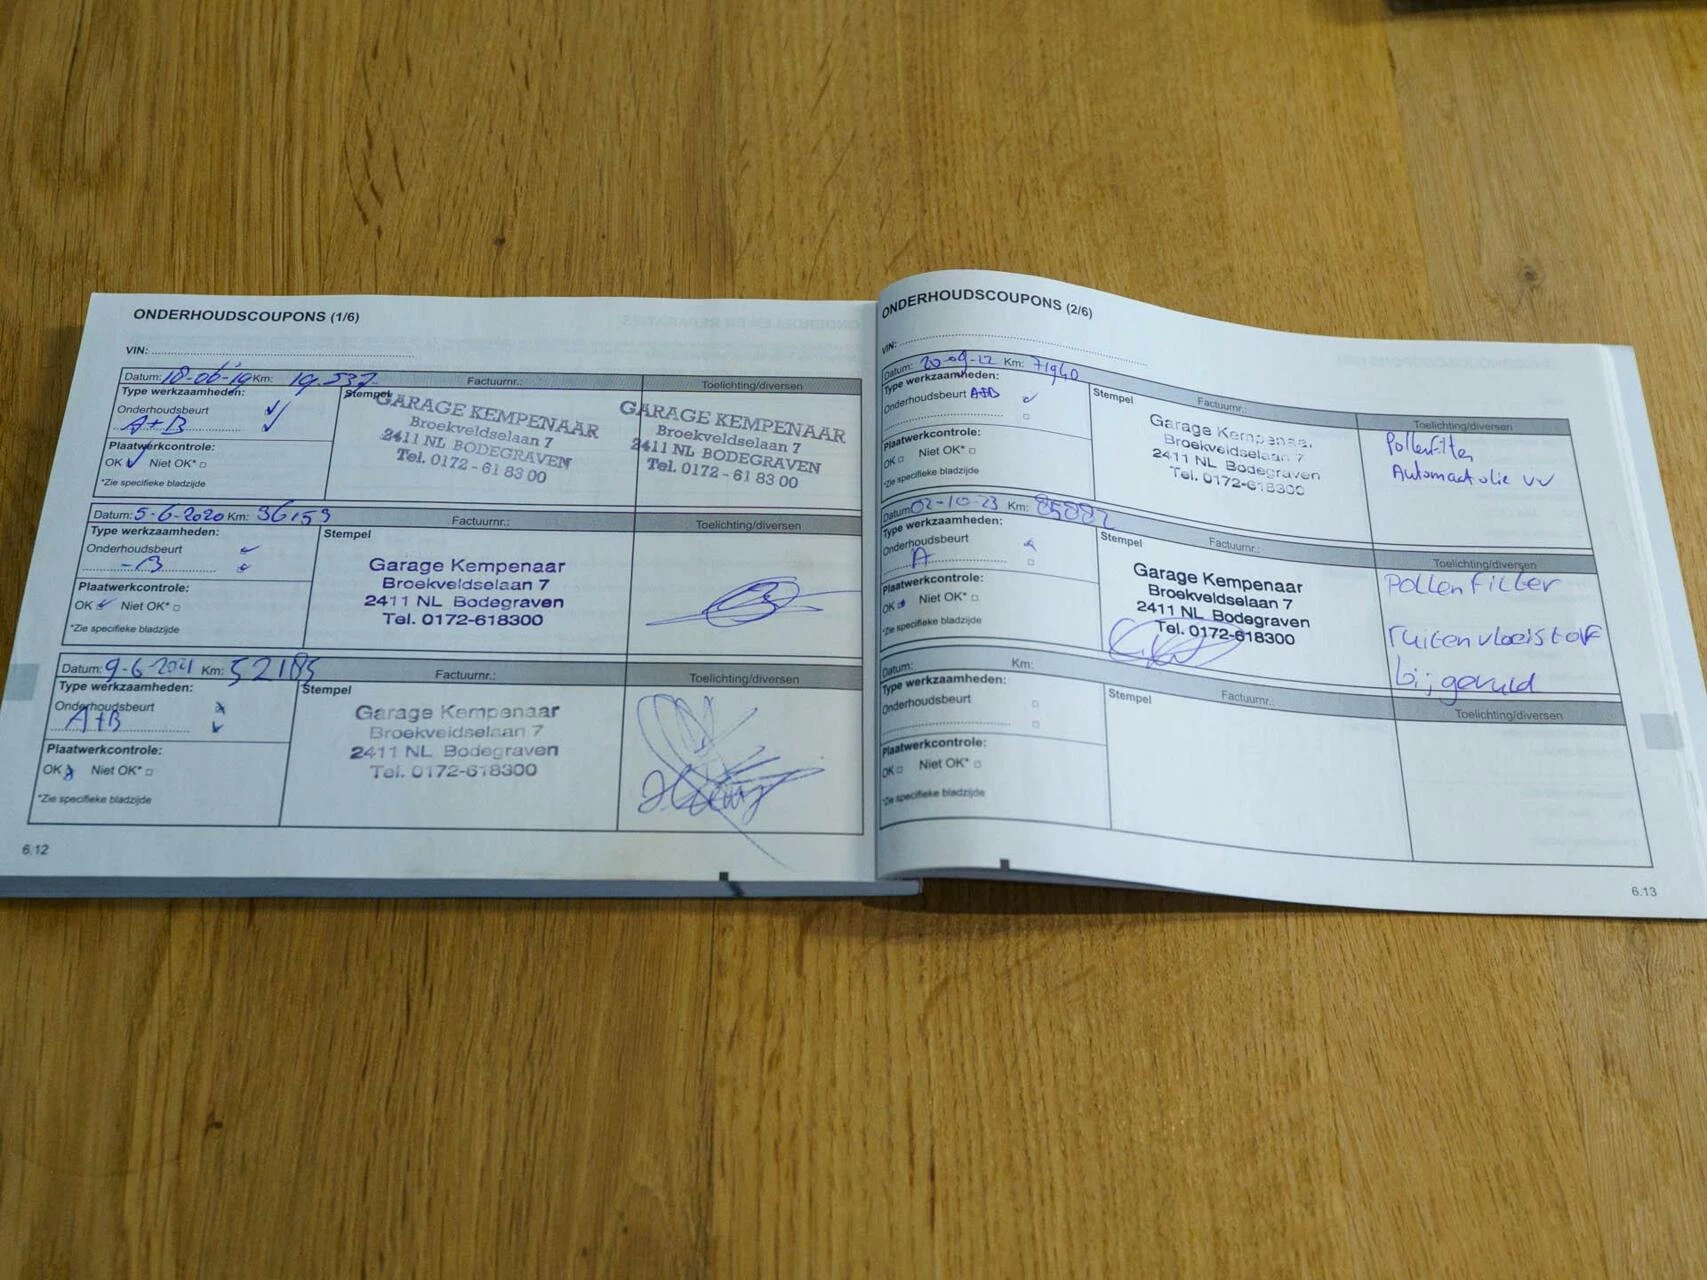 ONDERHOUDSCOUPONS (1/6)
VIN:
Datum: 18-06-19 Km: 19.537 Factuurnr.: Toelichting/diversen
Type werkzaamheden:
Onderhoudsbeurt
A+B
Plaatwerkcontrole:
OK Niet OK*
*Zie specifieke bladzijde
Stempel
GARAGE KEMPENAAR
Broekveldselaan 7
2411 NL BODEGRAVEN
Tel. 0172 - 61 83 00
GARAGE KEMPENAAR
Broekveldselaan 7
2411 NL BODEGRAVEN
Tel. 0172 - 61 83 00
Datum: 5-6-2020 Km: 36153 Factuurnr.: Toelichting/diversen
Type werkzaamheden:
Onderhoudsbeurt
-B
Plaatwerkcontrole:
OK Niet OK*
*Zie specifieke bladzijde
Stempel
Garage Kempenaar
Broekveldselaan 7
2411 NL Bodegraven
Tel. 0172-618300
Datum: 9-6-2021 Km: 52185 Factuurnr.: Toelichting/diversen
Type werkzaamheden:
Onderhoudsbeurt
A+B
Plaatwerkcontrole:
OK Niet OK*
*Zie specifieke bladzijde
Stempel
Garage Kempenaar
Broekveldselaan 7
2411 NL Bodegraven
Tel. 0172-618300
6.12
ONDERHOUDSCOUPONS (2/6)
VIN:
Datum: 20-09-22 Km: 71940 Factuurnr.: Toelichting/diversen
Type werkzaamheden:
Onderhoudsbeurt A+B
Plaatwerkcontrole:
OK Niet OK*
*Zie specifieke bladzijde
Stempel
Garage Kempenaar
Broekveldselaan 7
2411 NL Bodegraven
Tel. 0172-618300
Pollenfilter
Automaatolie vv
Datum: 02-10-23 Km: 85882 Factuurnr.: Toelichting/diversen
Type werkzaamheden:
Onderhoudsbeurt
A
Plaatwerkcontrole:
OK Niet OK*
*Zie specifieke bladzijde
Stempel
Garage Kempenaar
Broekveldselaan 7
2411 NL Bodegraven
Tel. 0172-618300
Pollenfilter
ruitenvloeistof
bijgevuld
Datum: Km: Factuurnr.: Toelichting/diversen
Type werkzaamheden:
Onderhoudsbeurt
Plaatwerkcontrole:
OK Niet OK*
*Zie specifieke bladzijde
Stempel
6.13